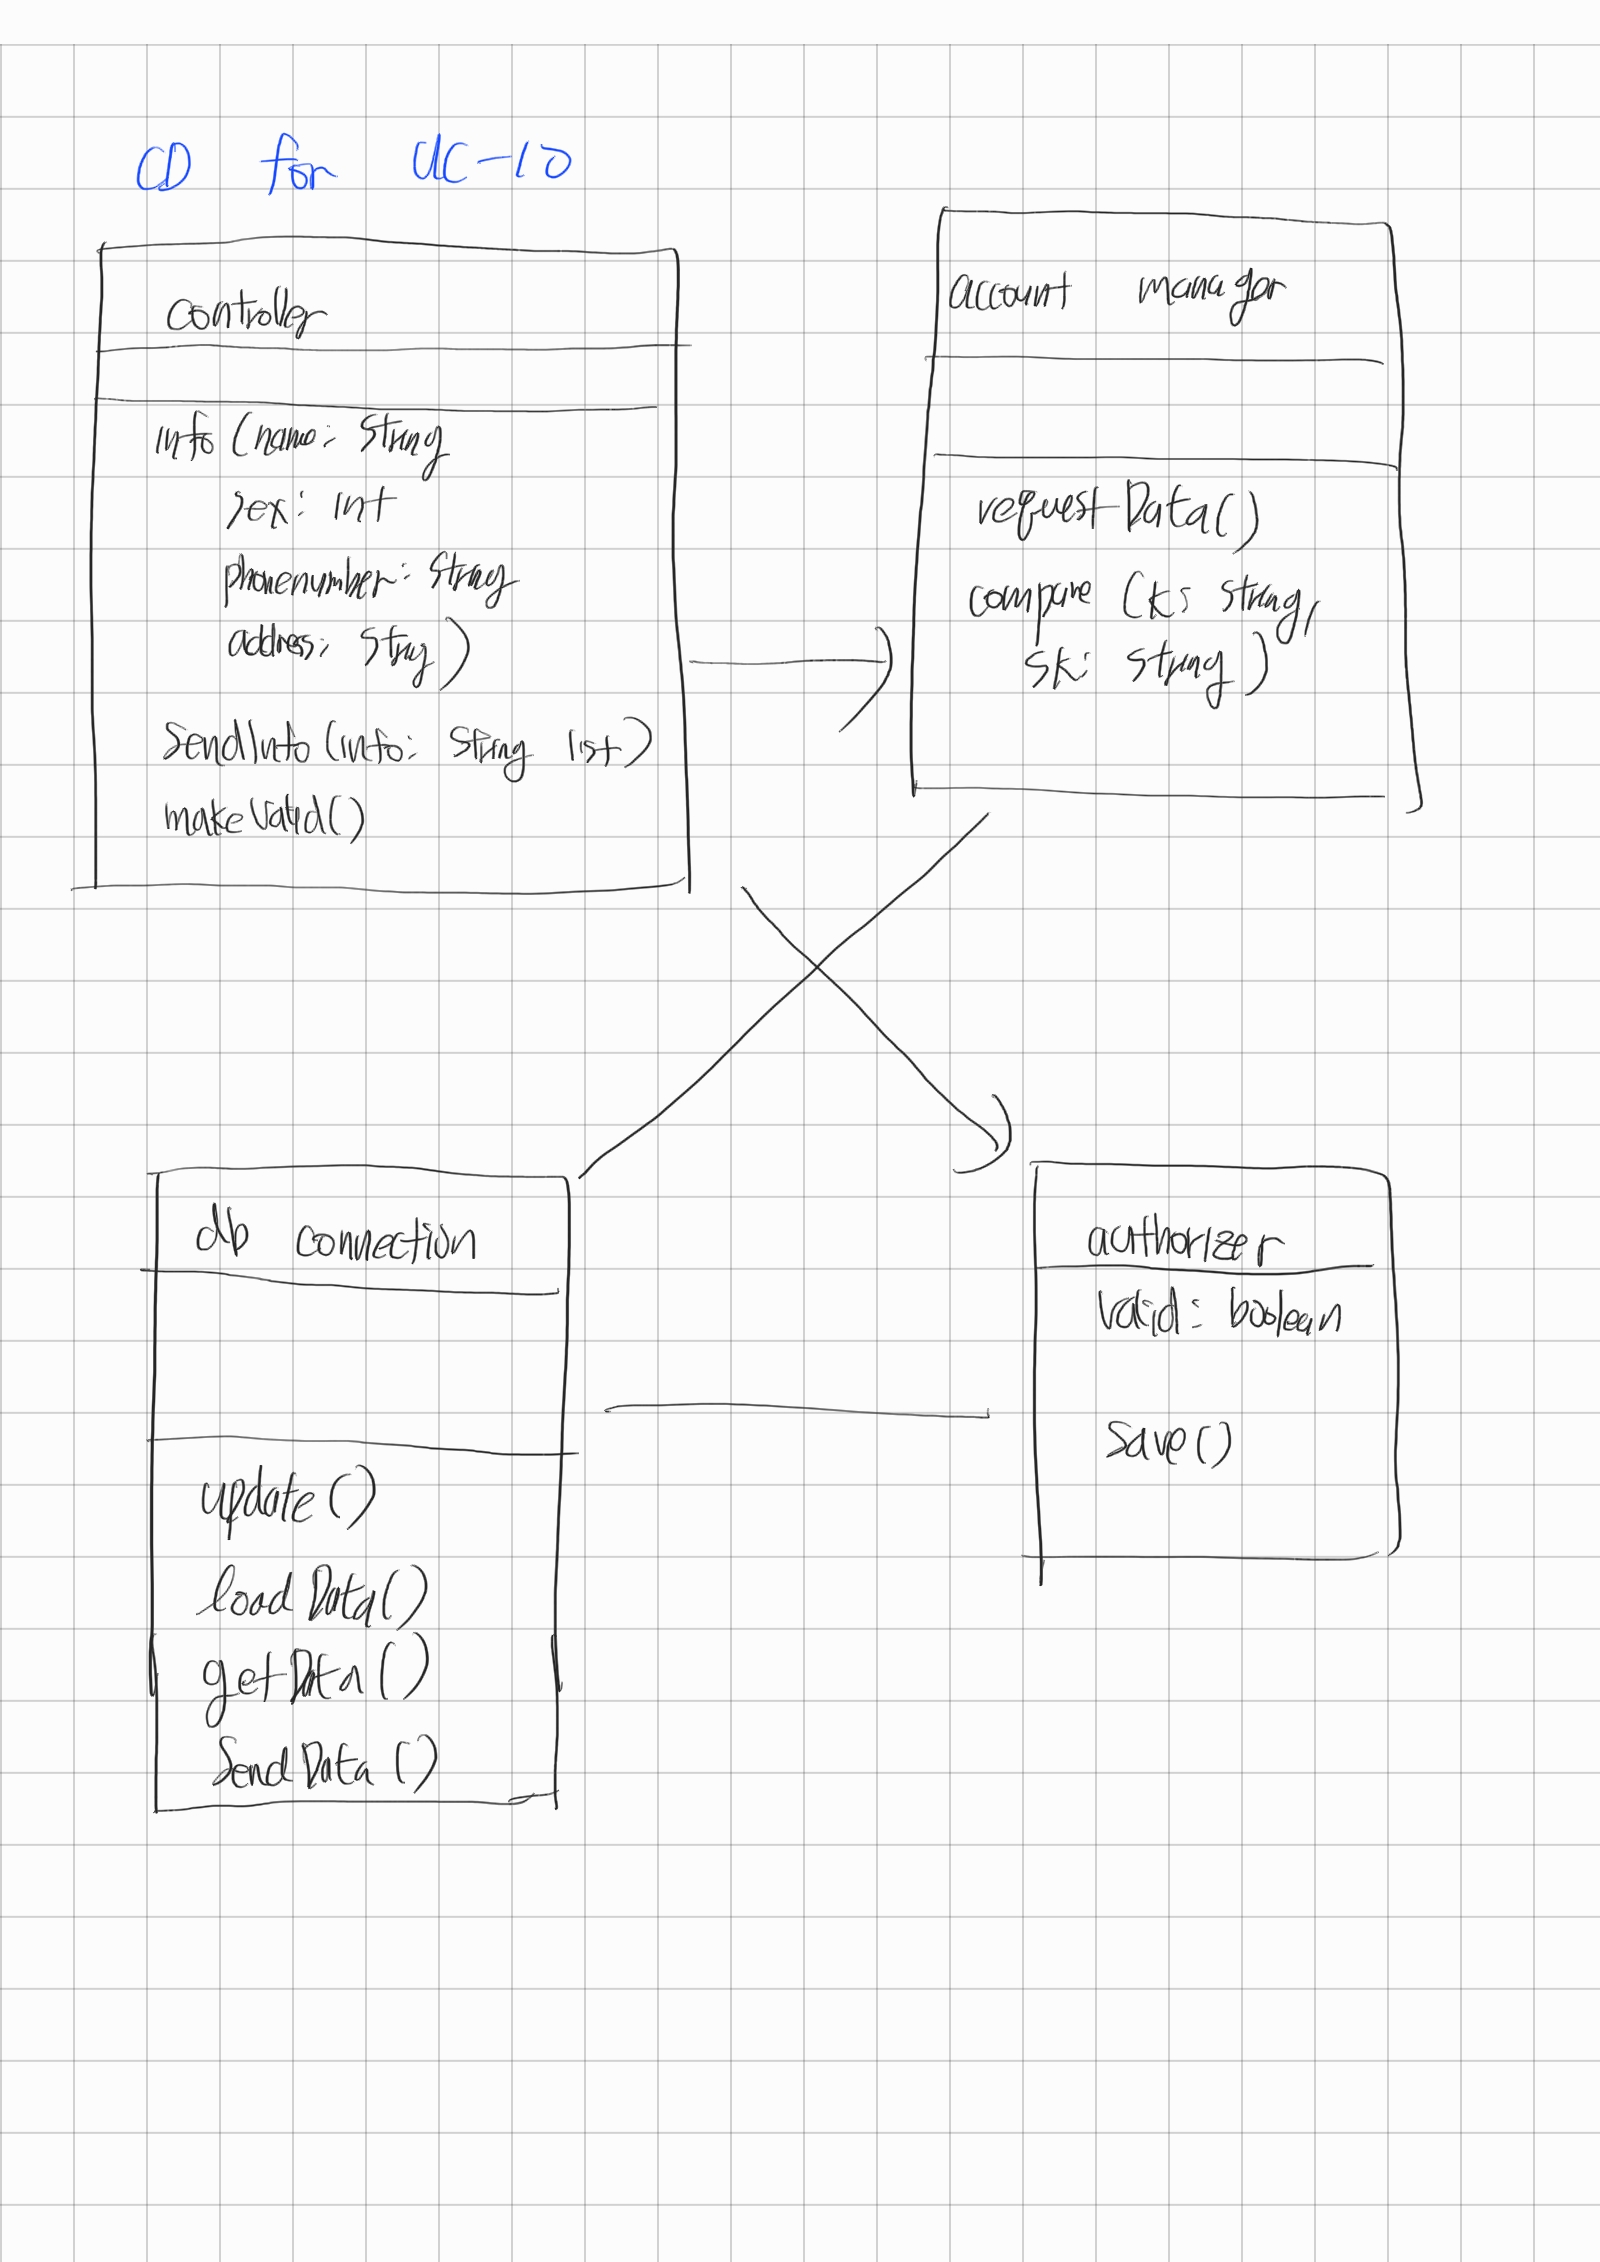 CD for UC-10
controller
info (name: String
sex: int
phonenumber: String
address: String)
SendInfo (info: String list)
makeValid()
account manager
requestData()
compare (k: string,
sk: string)
db connection
update()
loadData()
getData()
SendData()
authorizer
Valid: boolean
Save()